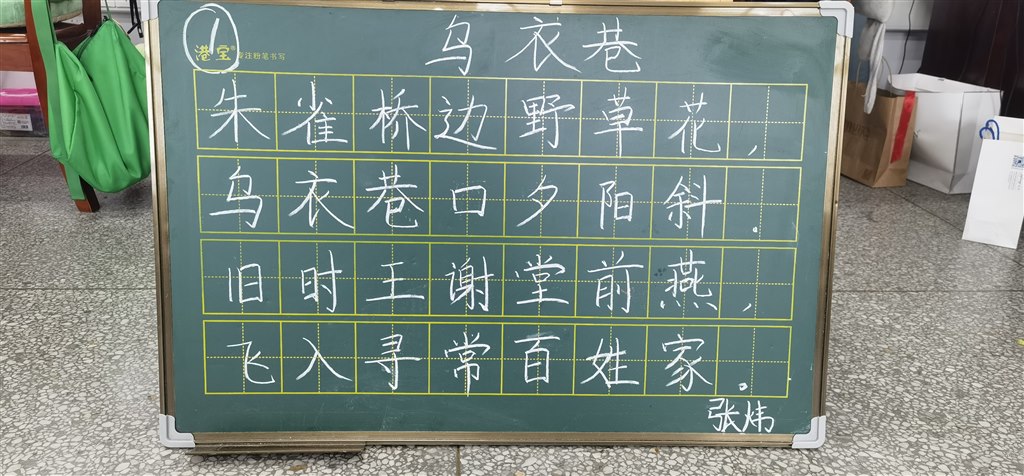 1
港宝® 专注粉笔书写
乌衣巷
朱雀桥边野草花,
乌衣巷口夕阳斜.
旧时王谢堂前燕,
飞入寻常百姓家.
张炜